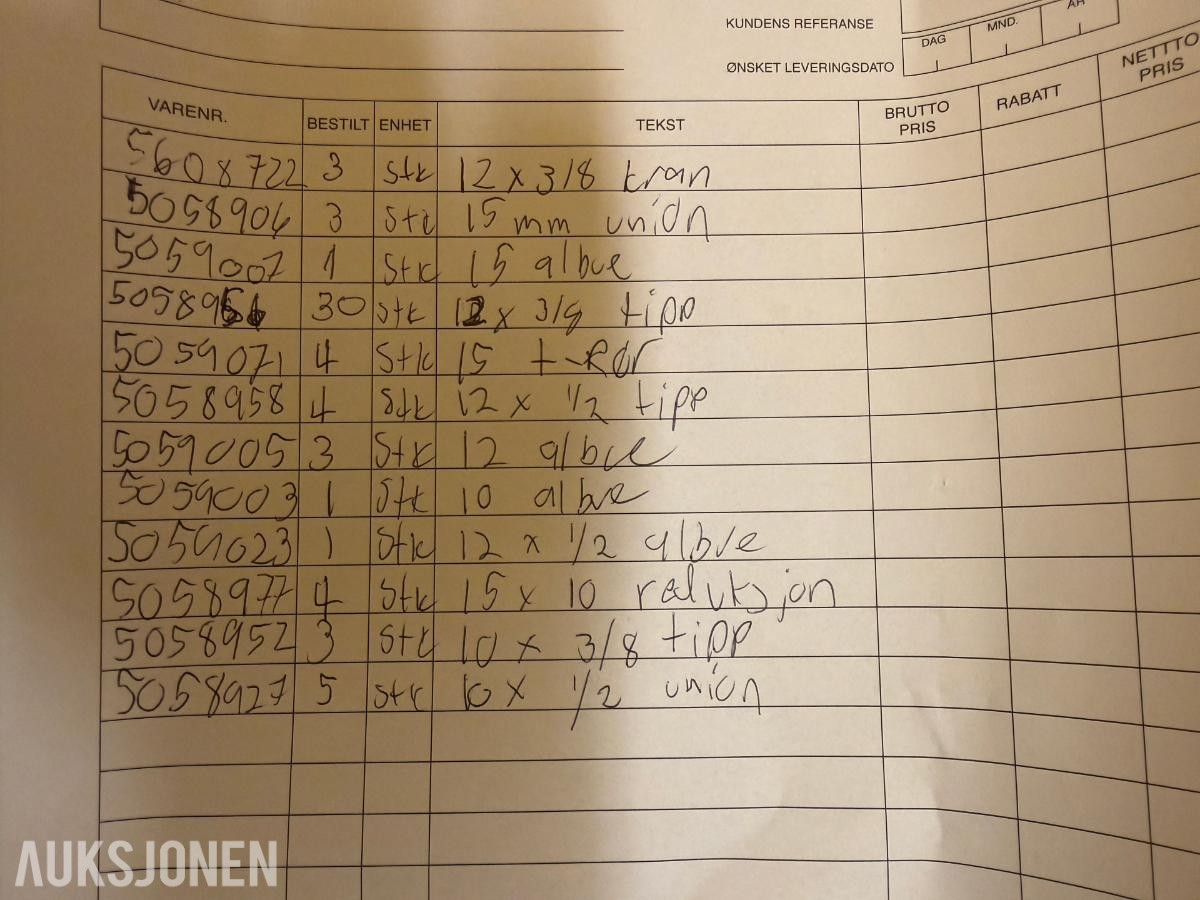 KUNDENS REFERANSE
DAG MND. ÅR
ØNSKET LEVERINGSDATO
VARENR. BESTILT ENHET TEKST BRUTTO PRIS RABATT NETTTO PRIS
5608722 3 stk 12 x 3/8 kran
5058906 3 Stk 15 mm union
5059007 1 Stk 15 albue
30 stk 12 x 3/8 tipp
5059071 4 Stk 15 t-Rør
5058958 4 Stk 12 x 1/2 tipp
5059005 3 Stk 12 albue
5059003 1 Stk 10 albue
5059023 1 Stk 12 x 1/2 albue
5058977 4 Stk 15 x 10 reduksjon
5058952 3 Stk 10 x 3/8 tipp
5058927 5 stk 10 x 1/2 union
AUKSJONEN